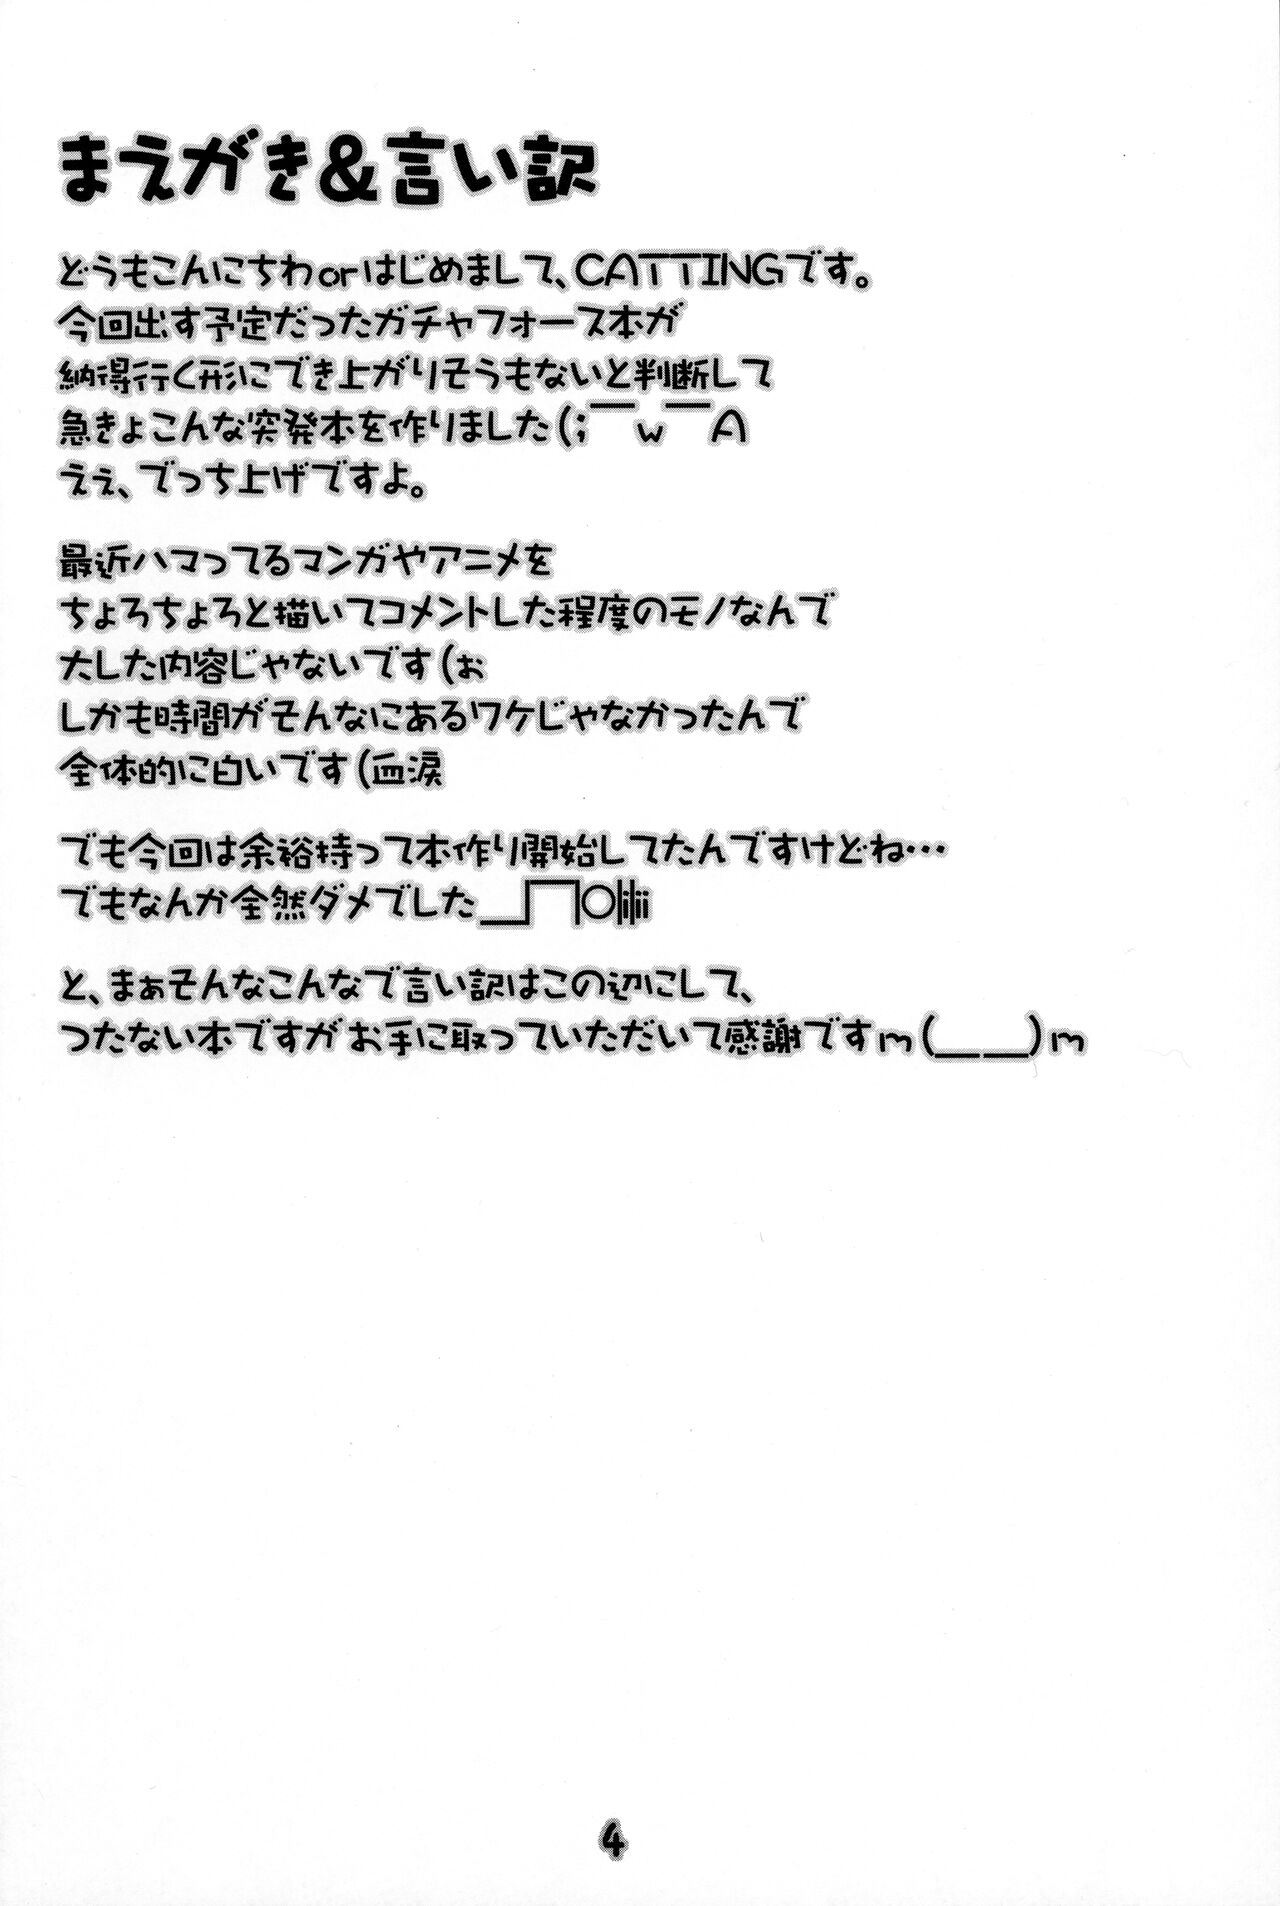 まえがき&言い訳
どうもこんにちわorはじめまして、CATTINGです。
今回出す予定だったガチャフォース本が
納得行く形にでき上がりそうもないと判断して
急きょこんな突発本を作りました(;￣w￣A
えぇ、でっち上げですよ。
最近ハマってるマンガやアニメを
ちょろちょろと描いてコメントした程度のモノなんで
大した内容じゃないです(ぉ
しかも時間がそんなにあるワケじゃなかったんで
全体的に白いです(血涙
でも今回は余裕持って本作り開始してたんですけどね…
でもなんか全然ダメでした＿|￣|○|i|iii
と、まぁそんなこんなで言い訳はこの辺にして、
つたない本ですがお手に取っていただいて感謝ですm(＿＿)m
4